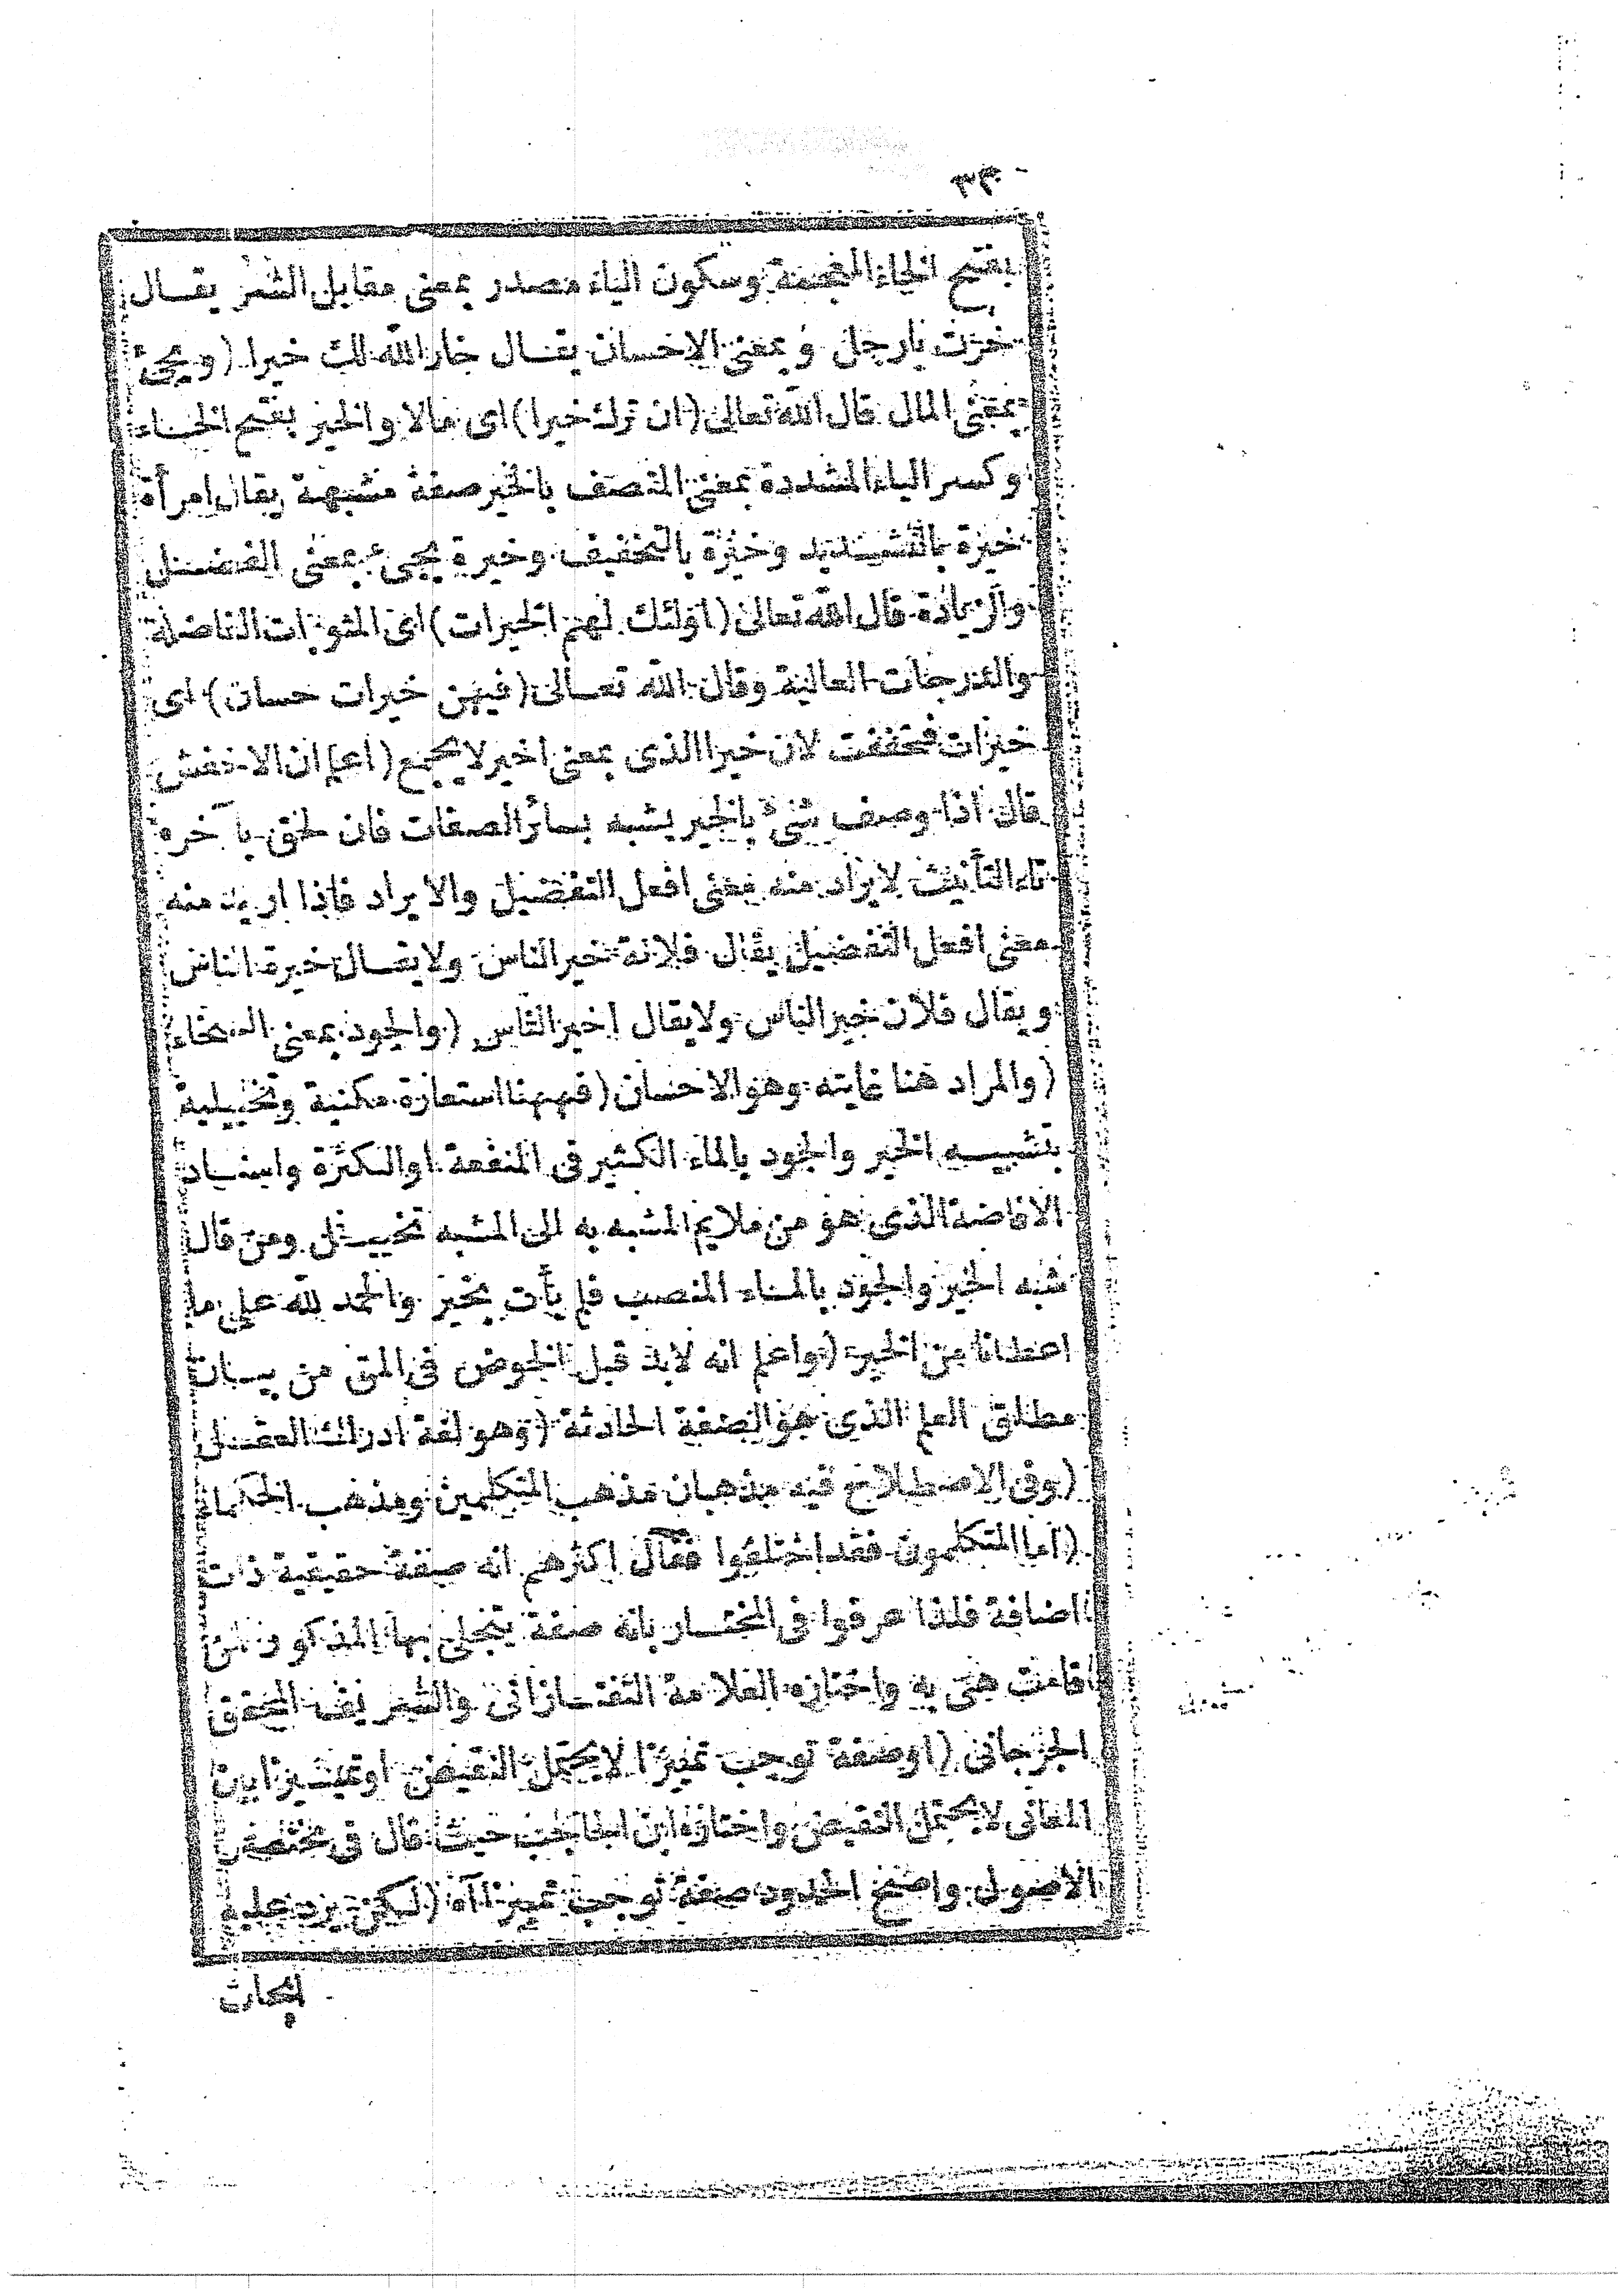 ٣٣
بفتح الخاء المعجمة وسكون الياء مصدر بمعنى مقابل الشر يقال
خرت يارجل وبمعنى الاحسان يقال خار الله لك خيرا (ويجئ
بمعنى المال قال الله تعالى (ان ترك خيرا) اى مالا والخير بفتح الخاء
وكسر الياء المشددة بمعنى المتصف بالخير صفة مشبهة يقال امرأة
خيرة بالتشديد وخيرة بالتخفيف وخيرة يجئ بمعنى الفضل
والزيادة قال الله تعالى (اولئك لهم الخيرات) اى المثوبات الفاضلة
والدرجات العالية وقال الله تعالى (فيهن خيرات حسان) اى
خيرات فخففت لان خيرا الذى بمعنى اخير لا يجمع (اعلم ان الاخفش
قال اذا وصف شئ بالخير يشبه بسائر الصفات فان لحق بآخره
تاء التأنيث لا يراد منه معنى افعل التفضيل والا يراد فاذا اريد منه
معنى افعل التفضيل يقال فلانة خير الناس ولا يقال خيرة الناس
ويقال فلان خير الناس ولا يقال اخير الناس (والجود بمعنى السخاء
(والمراد هنا غايته وهو الاحسان (فههنا استعارة مكنية وتخييلية
بتشبيه الخير والجود بالماء الكثير فى المنفعة او الكثرة واسناد
الافاضة الذى هو من ملايم المشبه به الى المشبه تخييل ومن قال
شبه الخير والجود بالماء المنصب فلم يأت بخير والحمد لله على ما
اعطانا من الخير (واعلم انه لابد قبل الخوض فى المتن من بيان
مطلق العلم الذى هو الصفة الحادثة (وهو لغة ادراك العقل
(وفى الاصطلاح فيه مذهبان مذهب المتكلمين ومذهب الحكماء
(اما المتكلمون فقد اختلفوا فقال اكثرهم انه صفة حقيقية ذات
اضافة فلذا عرفوا فى المختار بانه صفة يتجلى بها المذكور لمن
قامت هى به واختاره العلامة التفتازانى والشريف المحقق
الجرجانى (اوصفة توجب تميزا لا يحتمل النقيض او تمييزا بين
المعانى لا يحتمل النقيض واختاره ابن الحاجب حيث قال فى مختصر
الاصول واصح الحدود صفة توجب تميزا آه (لكن يرد عليه